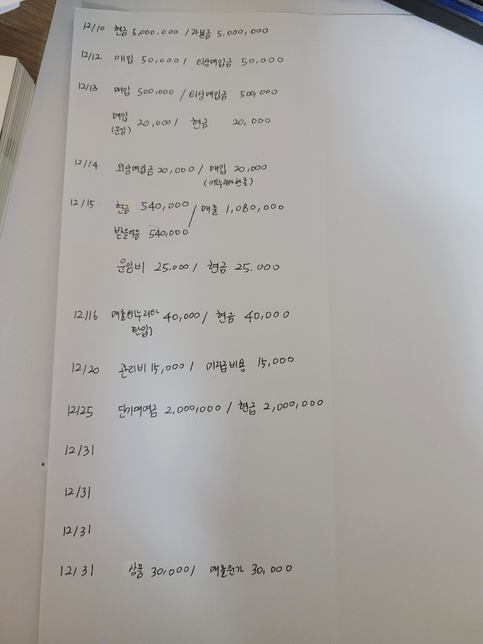 12/10 현금 5,000,000 / 자본금 5,000,000
12/12 매입 50,000 / 외상매입금 50,000
12/13 매입 500,000 / 외상매입금 500,000
매입 20,000 / 현금 20,000
(운임)
12/14 외상매입금 20,000 / 매입 20,000
12/15 현금 540,000 / 매출 1,080,000
받을어음 540,000
운임비 25.000 / 현금 25.000
12/16 40,000 / 현금 40,000
12/20 관리비 15,000 / 미지급비용 15,000
12/25 단기대여금 2,000,000 / 현금 2,000,000
12/31
12/31
12/31
12/31 상품 30,000 / 매출원가 30,000